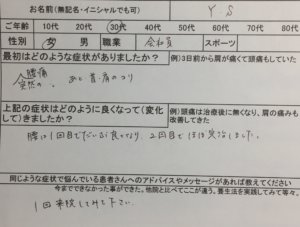 お名前(無記名・イニシャルでも可) Y.S
ご年齢 10代 20代 30代 40代 50代 60代 70代 8
性別 女 男 職業 会社員 スポーツ
最初はどのような症状がありましたか? 例)3日前から肩が痛くて頭痛もしていた
突然の腰痛。あと首・肩のコリ
上記の症状はどのように良くなって(変化して)きましたか? 例)頭痛は治療後に無くなり、肩の痛みも改善してきた
腰は1回目でだいぶ良くなり、2回目でほぼ完治しました。
同じような症状で悩んでいる患者さんへのアドバイスやメッセージがあれば教えてください
今までできなかった事ができた。他院と比べてここが違う。養生法を実践してみて等々。
1回来院してみて下さい。